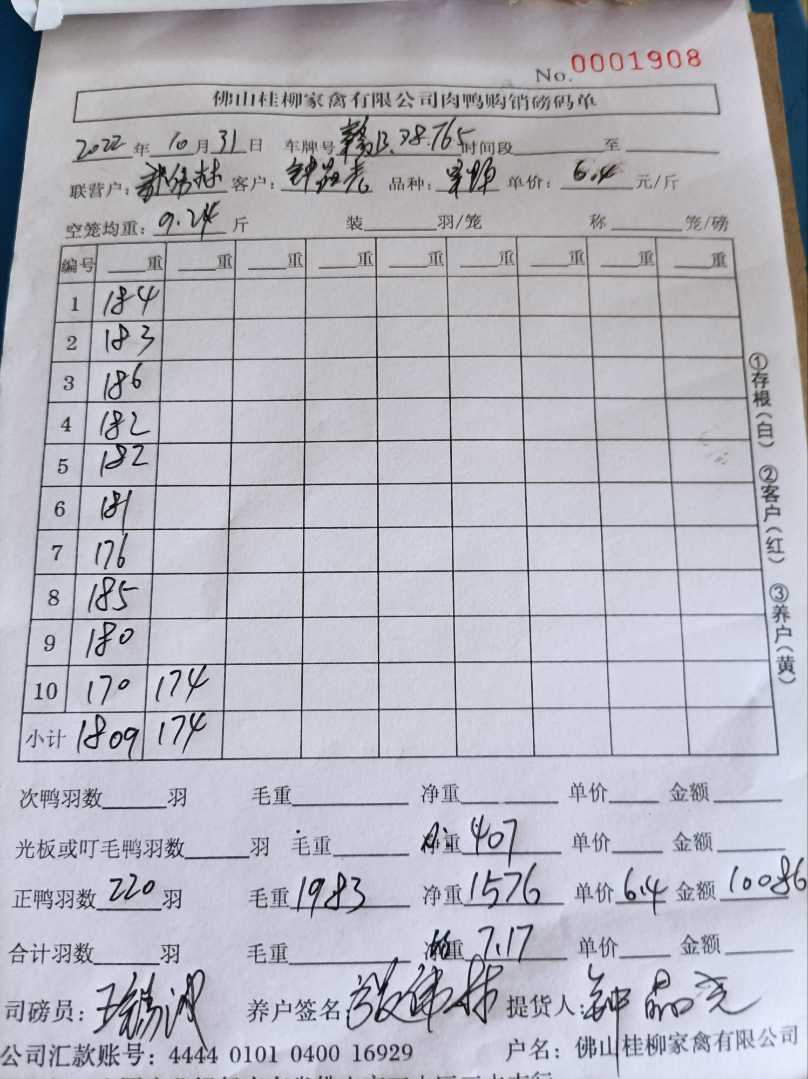 No. 0001908
佛山桂柳家禽有限公司肉鸭购销磅码单
2022年10月31日 车牌号赣B.38765时间段 至
联营户: 客户:钟晶亮 品种: 单价:6.4元/斤
空笼均重:9.24斤 装 羽/笼 称 笼/磅
编号 重 重 重 重 重 重 重 重 重
1 184
2 183
3 186
4 182
5 182
6 181
7 176
8 185
9 180
10 170 174
小计 1809 174
次鸭羽数 羽 毛重 净重 单价 金额
光板或叮毛鸭羽数 羽 毛重 重407 单价 金额
正鸭羽数220羽 毛重1983 净重1576 单价6.4 金额10086
合计羽数 羽 毛重 重7.17 单价 金额
司磅员: 养户签名 提货人:钟晶亮
公司汇款账号: 4444 0101 0400 16929 户名: 佛山桂柳家禽有限公司
①存根(白) ②客户(红) ③养户(黄)